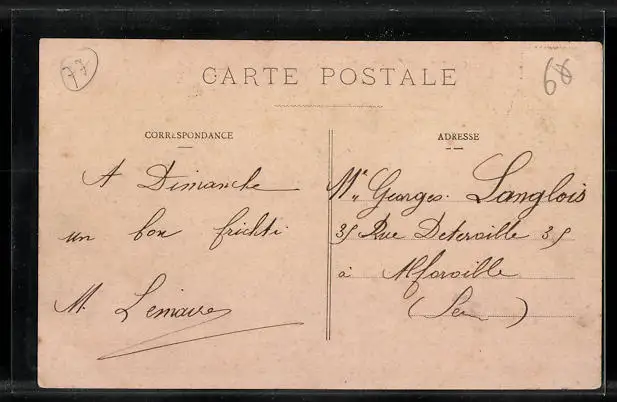 77
68
CARTE POSTALE
CORRESPONDANCE
A Dimanche
un bon frichti
M. Lemaire
ADRESSE
Mr Georges Langlois
35 Rue Deteroille 35
à Alforville
(Sein)